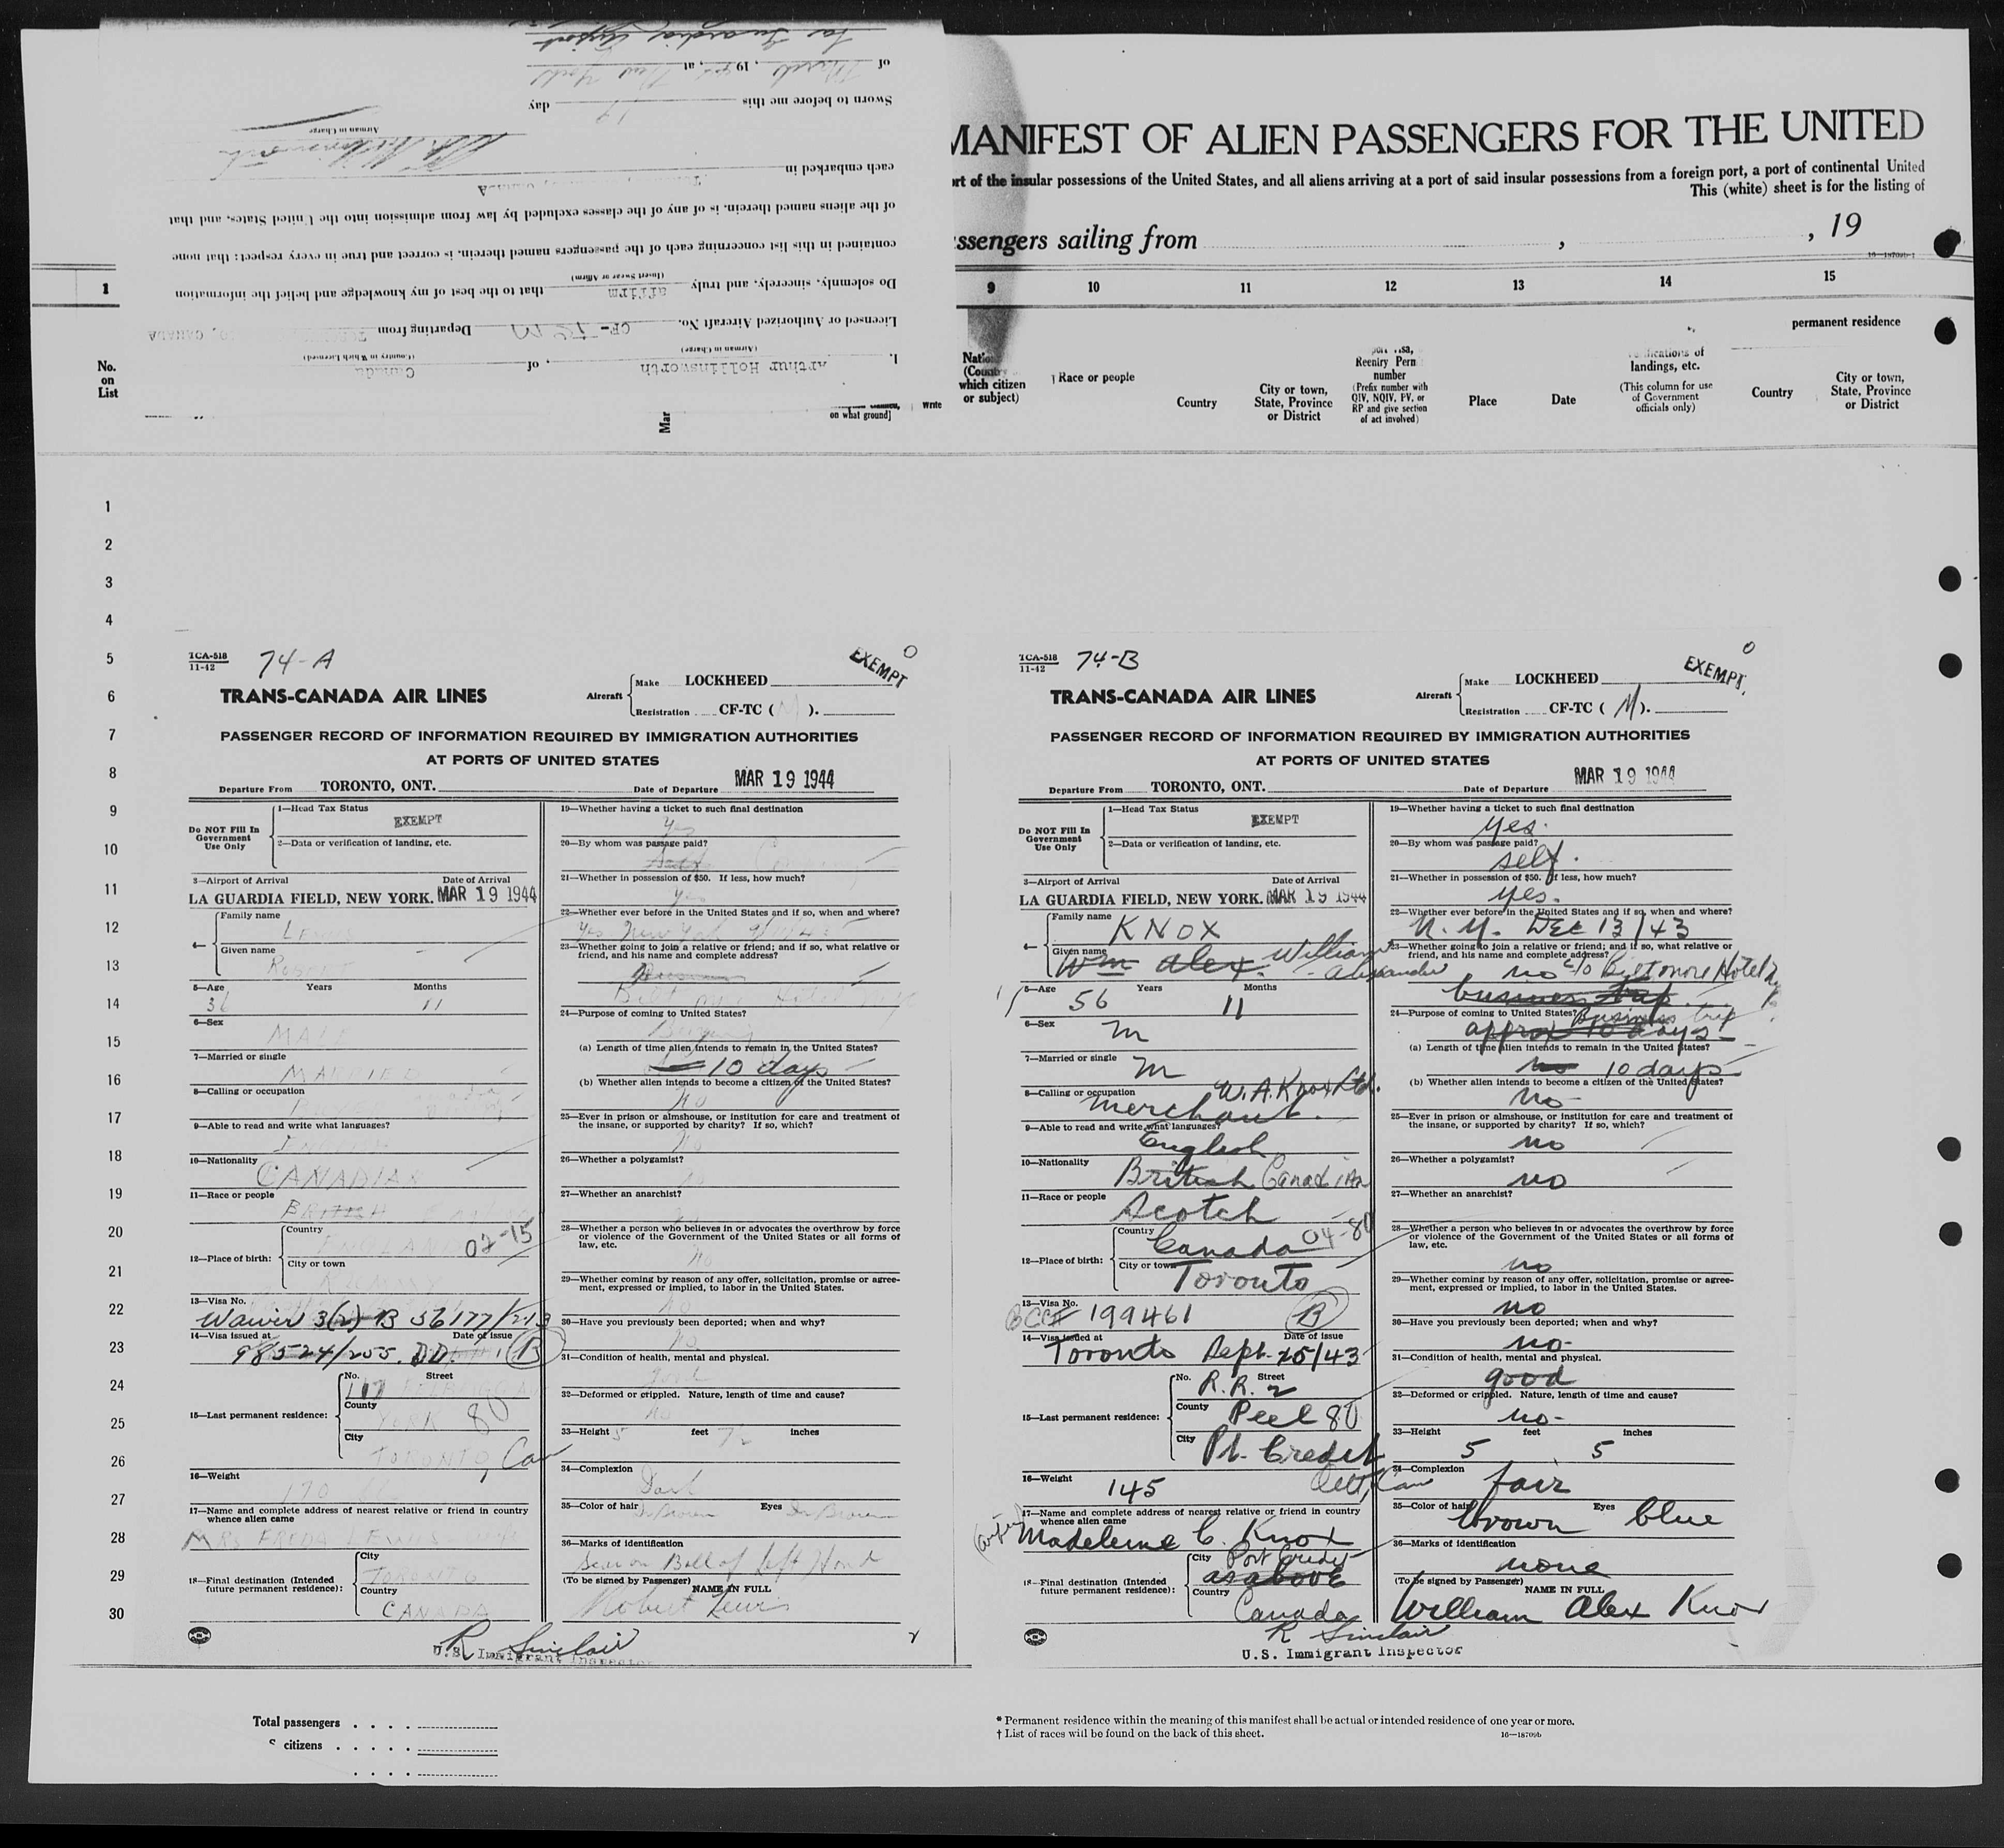 MANIFEST OF ALIEN PASSENGERS FOR THE UNITED
rt of the insular possessions of the United States, and all aliens arriving at a port of said insular possessions from a foreign port, a port of continental United
This (white) sheet is for the listing of
ssengers sailing from , , 19
Sworn to before me this 19 day
of March, 1944, at New York
La Guardia Airport
each embarked in
Airman in Charge
of the aliens named therein, is of any of the classes excluded by law from admission into the United States, and that
contained in this list concerning each of the passengers named therein, is correct and true in every respect: that none
Do solemnly, sincerely, and truly affirm that to the best of my knowledge and belief the information
(Insert Swear or Affirm)
Licensed or Authorized Aircraft No. CF-TCM Departing from CANADA
(Airman in Charge) (Country in Which Licensed)
I, Arthur Hollinsworth, of Canada
on what ground]
Write
Mar
1 9 10 11 12 13 14 15
No. on List
which citizen or subject)
Race or people
Country
City or town, State, Province or District
Reentry Perm number
(Prefix number with QIV, NQIV, PV, or RP and give section of act involved)
Place
Date
landings, etc.
(This column for use of Government officials only)
permanent residence
Country
City or town, State, Province or District
1
2
3
4
5
6
7
8
9
10
11
12
13
14
15
16
17
18
19
20
21
22
23
24
25
26
27
28
29
30
TCA-518
11-42
74-A
EXEMPT
TRANS-CANADA AIR LINES
Aircraft Make LOCKHEED
Registration CF-TC (M).
PASSENGER RECORD OF INFORMATION REQUIRED BY IMMIGRATION AUTHORITIES
AT PORTS OF UNITED STATES
Departure From TORONTO, ONT. Date of Departure MAR 19 1944
Do NOT Fill In Government Use Only
1—Head Tax Status
EXEMPT
2—Data or verification of landing, etc.
3—Airport of Arrival Date of Arrival
LA GUARDIA FIELD, NEW YORK. MAR 19 1944
4— Family name LEWIS
Given name ROBERT
5—Age 36 Years 11 Months
6—Sex MALE
7—Married or single MARRIED
8—Calling or occupation
9—Able to read and write what languages?
10—Nationality CANADIAN
11—Race or people BRITISH
12—Place of birth: Country ENGLAND 02-15
City or town
13—Visa No. Waiver 3(2) B 56177/213
14—Visa issued at Date of issue
98524/255. DD. B
15—Last permanent residence: No. Street
County YORK 80
City TORONTO, Can
16—Weight 170
17—Name and complete address of nearest relative or friend in country whence alien came
MRS FREDA LEWIS
18—Final destination (Intended future permanent residence): City TORONTO
Country CANADA
19—Whether having a ticket to such final destination
Yes
20—By whom was passage paid?
21—Whether in possession of $50. If less, how much?
Yes
22—Whether ever before in the United States and if so, when and where?
Yes New York
23—Whether going to join a relative or friend; and if so, what relative or friend, and his name and complete address?
Biltmore Hotel N.Y.
24—Purpose of coming to United States?
(a) Length of time alien intends to remain in the United States?
10 days
(b) Whether alien intends to become a citizen of the United States?
No
25—Ever in prison or almshouse, or institution for care and treatment of the insane, or supported by charity? If so, which?
No
26—Whether a polygamist?
No
27—Whether an anarchist?
28—Whether a person who believes in or advocates the overthrow by force or violence of the Government of the United States or all forms of law, etc.
No
29—Whether coming by reason of any offer, solicitation, promise or agreement, expressed or implied, to labor in the United States.
No
30—Have you previously been deported; when and why?
No
31—Condition of health, mental and physical.
good
32—Deformed or crippled. Nature, length of time and cause?
No
33—Height 5 feet 7½ inches
34—Complexion Dark
35—Color of hair Dr Brown Eyes Dr Brown
36—Marks of identification
Scar on Ball of left Hand
(To be signed by Passenger) NAME IN FULL
Robert Lewis
R Sinclair
U.S. Immigrant Inspector
TCA-518
11-42
74-B
EXEMPT
TRANS-CANADA AIR LINES
Aircraft Make LOCKHEED
Registration CF-TC (M).
PASSENGER RECORD OF INFORMATION REQUIRED BY IMMIGRATION AUTHORITIES
AT PORTS OF UNITED STATES
Departure From TORONTO, ONT. Date of Departure MAR 19 1944
Do NOT Fill In Government Use Only
1—Head Tax Status
EXEMPT
2—Data or verification of landing, etc.
3—Airport of Arrival Date of Arrival
LA GUARDIA FIELD, NEW YORK. MAR 19 1944
4— Family name KNOX
Given name Wm Alex. William Alexander
5—Age 56 Years 11 Months
6—Sex M
7—Married or single M
8—Calling or occupation W.A. Knox Ltd.
Merchant.
9—Able to read and write what languages?
English
10—Nationality British Canadian
11—Race or people Scotch
12—Place of birth: Country Canada 04-80
City or town Toronto
13—Visa No. BCC# 199461 B
14—Visa issued at Date of issue
Toronto Sept. 25/43
15—Last permanent residence: No. Street R.R. 2
County Peel 80
City Pt. Credit
Ont, Can
16—Weight 145
17—Name and complete address of nearest relative or friend in country whence alien came
(wife) Madeleine C. Knox
18—Final destination (Intended future permanent residence): City Port Credit as above
Country Canada
19—Whether having a ticket to such final destination
yes.
20—By whom was passage paid?
self.
21—Whether in possession of $50. If less, how much?
yes.
22—Whether ever before in the United States and if so, when and where?
N.Y. Dec 13/43
23—Whether going to join a relative or friend; and if so, what relative or friend, and his name and complete address?
no c/o Biltmore Hotel
business trip.
24—Purpose of coming to United States? Business trip
approx 10 days
(a) Length of time alien intends to remain in the United States?
no 10 days
(b) Whether alien intends to become a citizen of the United States?
no
25—Ever in prison or almshouse, or institution for care and treatment of the insane, or supported by charity? If so, which?
no
26—Whether a polygamist?
no
27—Whether an anarchist?
28—Whether a person who believes in or advocates the overthrow by force or violence of the Government of the United States or all forms of law, etc.
no
29—Whether coming by reason of any offer, solicitation, promise or agreement, expressed or implied, to labor in the United States.
no
30—Have you previously been deported; when and why?
no-
31—Condition of health, mental and physical.
good
32—Deformed or crippled. Nature, length of time and cause?
no-
33—Height 5 feet 5 inches
34—Complexion fair
35—Color of hair brown Eyes blue
36—Marks of identification
none
(To be signed by Passenger) NAME IN FULL
William Alex Knox
R Sinclair
U.S. Immigrant Inspector
Total passengers . . . .
citizens . . . . .
* Permanent residence within the meaning of this manifest shall be actual or intended residence of one year or more.
† List of races will be found on the back of this sheet.
16—18709b